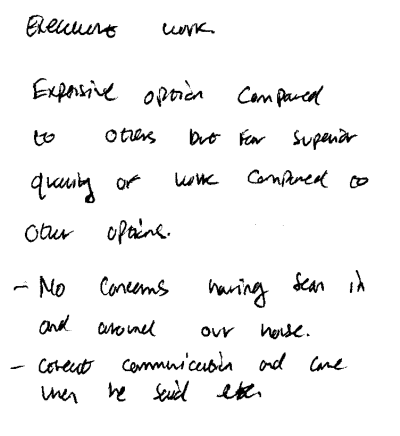 Excellent work.
Expensive option compared
to others but far superior
quality of work compared to
other options.
- No concerns having Sean in
and around our house.
- Great communication and came
when he said etc.